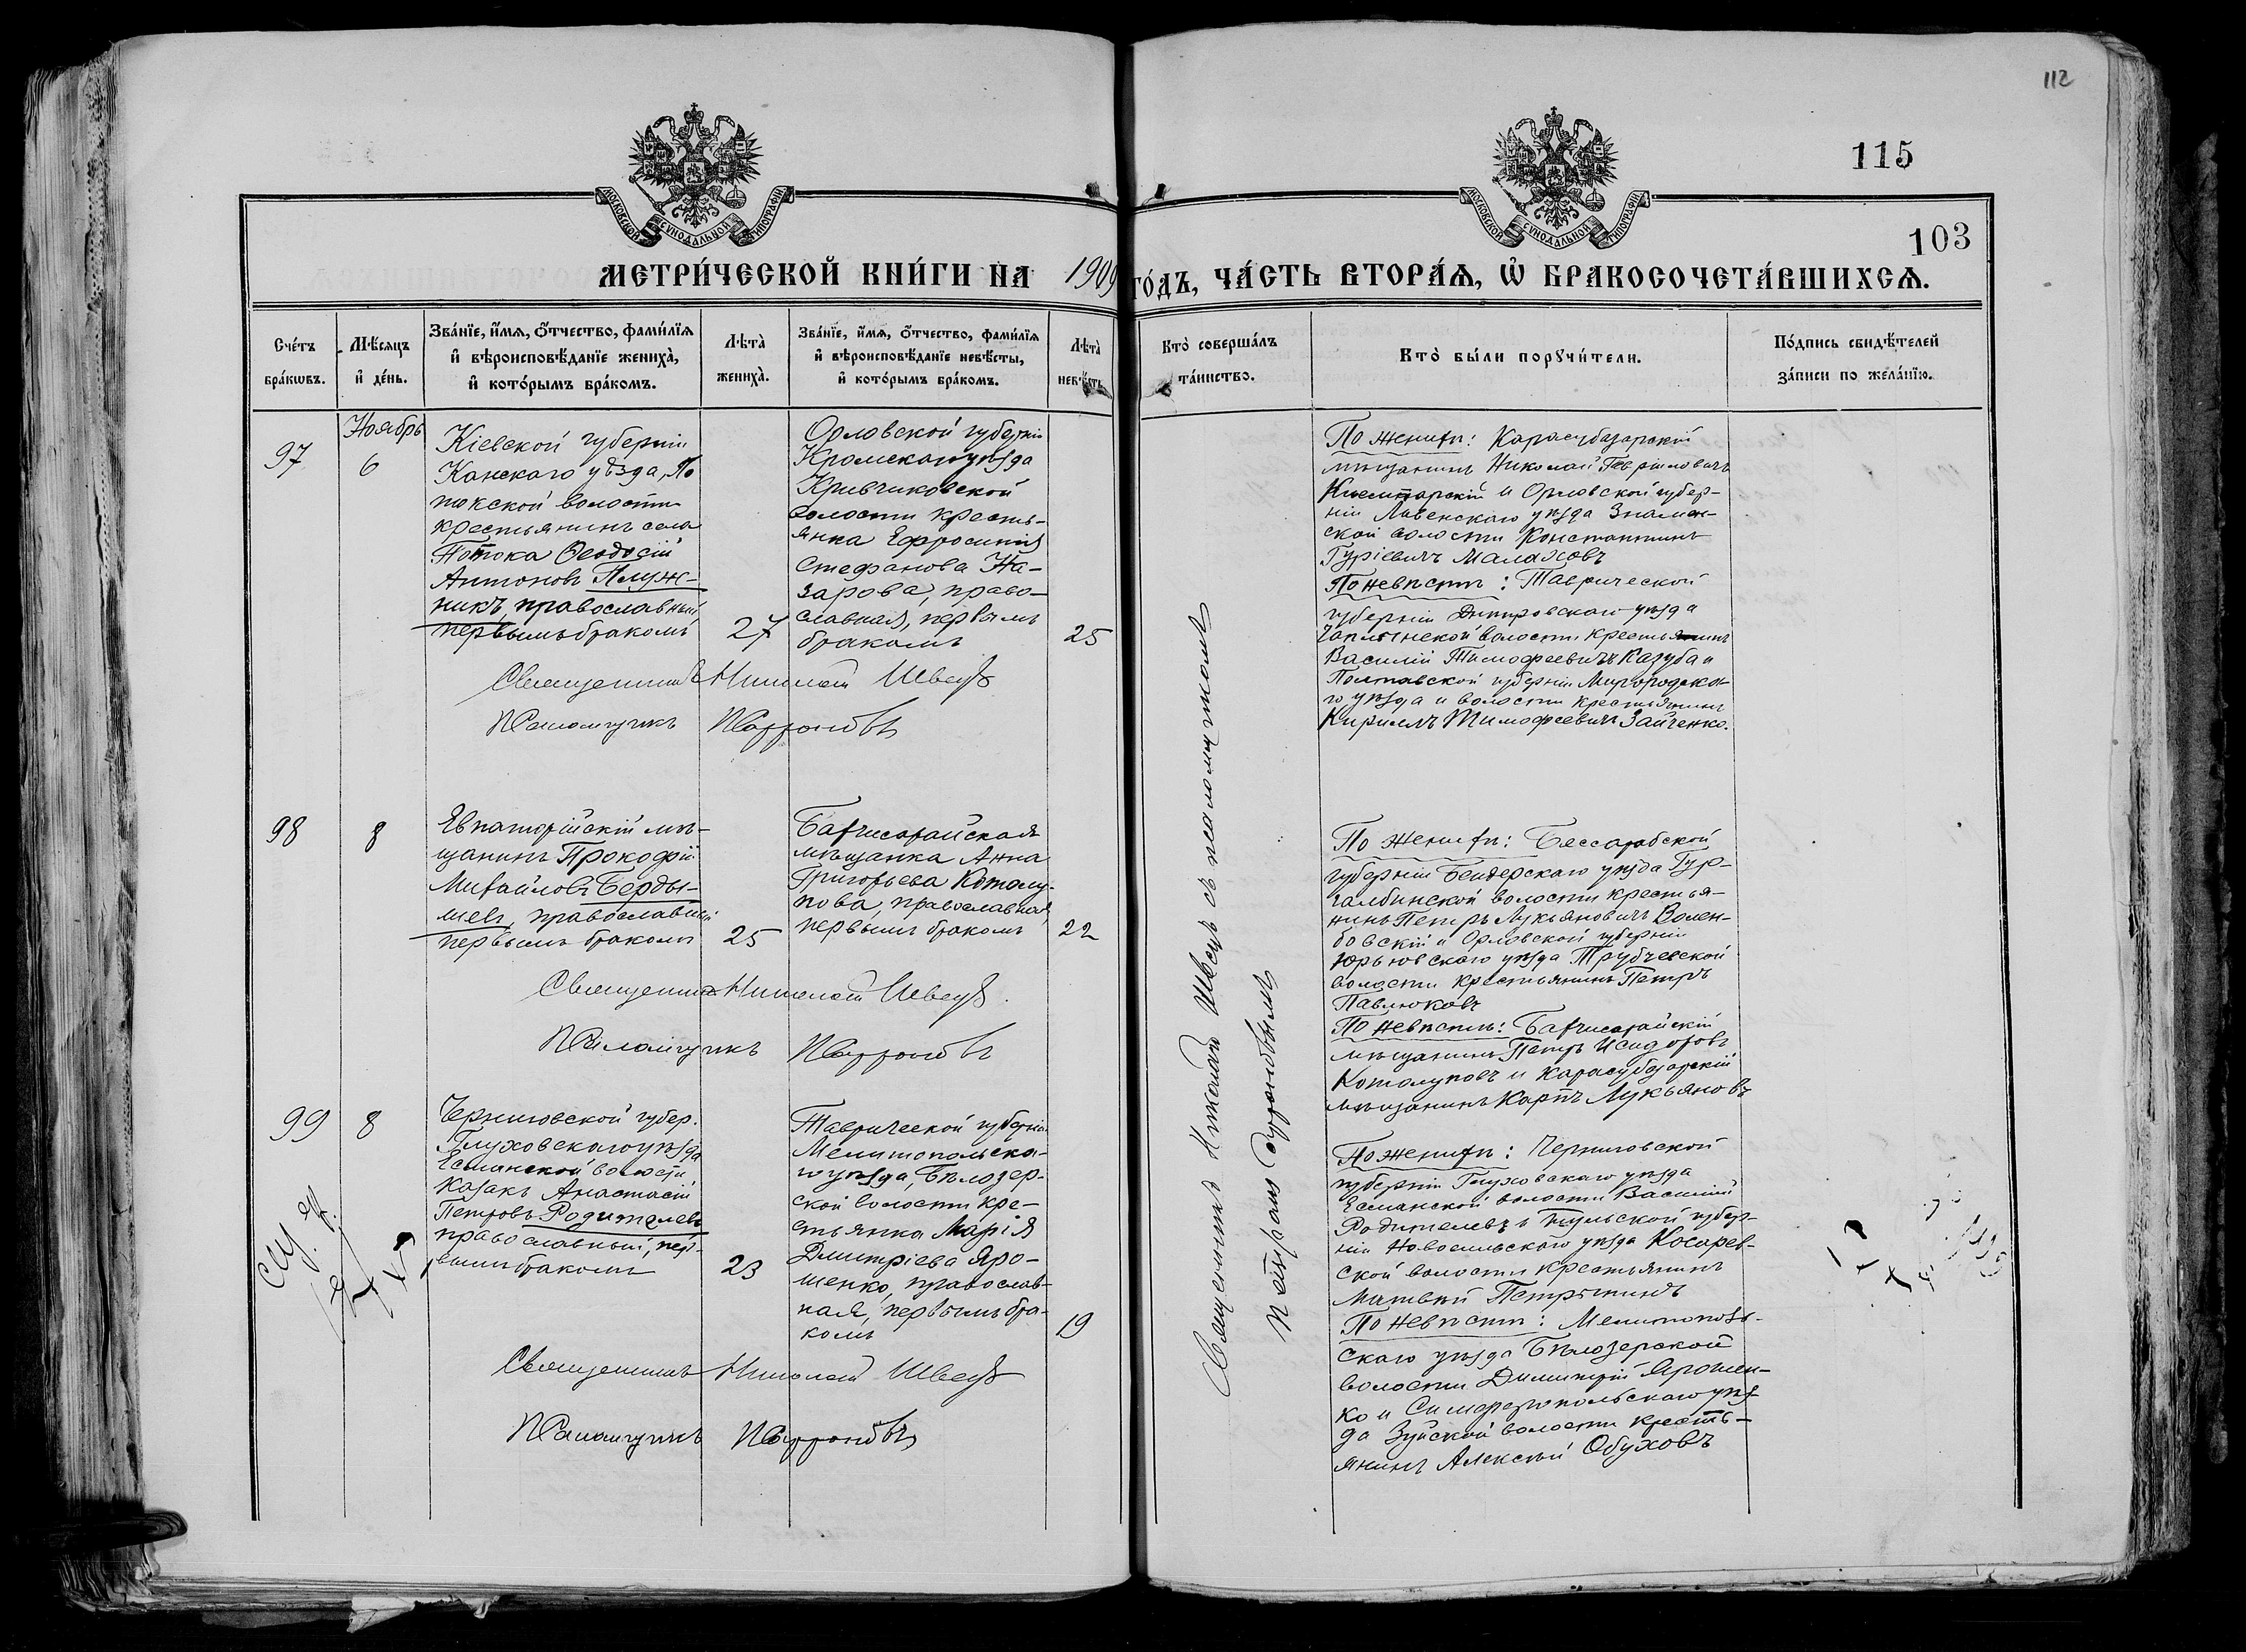 112
115
103
МОСКОВСКОЙ СѴНОДАЛЬНОЙ ТИПОГРАФІИ
МОСКОВСКОЙ СѴНОДАЛЬНОЙ ТИПОГРАФІИ
МЕТРИ́ЧЕСКОЙ КНИ́ГИ НА 1909 ГО́ДЪ, ЧА́СТЬ ВТОРА́Ѧ, Ѽ БРАКОСОЧЕТА́ВШИХСѦ.
Сче́тъ
бра́кѡвъ.
Мѣ́сяцъ
и҆ де́нь.
Зва́нїе, и҆́мѧ, ѻ҆́тчество, фами́лїѧ
и҆ вѣроисповѣ́данїе жениха̀,
и҆ кото́рымъ бра́комъ.
Лѣта̀
жениха̀.
Зва́нїе, и҆́мѧ, ѻ҆́тчество, фами́лїѧ
и҆ вѣроисповѣ́данїе невѣ́сты,
и҆ кото́рымъ бра́комъ.
Лѣта̀
невѣ́сты
Кто̀ соверша́лъ
та́инство.
Кто̀ бы́ли порꙋчи́тели.
По́дпись свидѣ́телей
за́писи по жела́нїю.
97
Ноябрь
6
Кіевской губерніи
Канскаго уѣзда, По
токской волости
крестьянинъ села
Потока Ѳеодосій
Антоновъ Плуж-
никъ, православный,
первымъ бракомъ
27
Орловской губерніи
Кромскаго уѣзда
Кривчиковской
волости кресть-
янка Ефросинія
Стефанова На-
зарова, право-
славная, первымъ
бракомъ
25
Священникъ Николай Швецъ
Псаломщикъ
По женихѣ: Карасубазарскій
мѣщанинъ Николай Гавріиловичъ
и Орловской губер-
ніи Ливенскаго уѣзда Знамен-
ской волости Константинъ
Гуріевичъ Малаховъ
По невѣстѣ: Таврической
губерніи Днѣпровскаго уѣзда
Чаплынской волости крестьянинъ
Василій Тимофеевичъ Казуба и
Полтавской губерніи Миргородска-
го уѣзда и волости крестьянинъ
Кириллъ Тимофеевичъ Зайченко.
98
8
Евпаторійскій мѣ-
щанинъ Прокофій
Михайловъ Берды-
шев, православный
первымъ бракомъ
25
Бахчисарайская
мѣщанка Анна
Григорьева Котолу-
пова, православная,
первымъ бракомъ
22
Священникъ Николай Швецъ.
Псаломщикъ
По женихѣ: Бессарабской
губерніи Бендерскаго уѣзда Гур-
галбинской волости крестья-
нинъ Петръ Лукьяновичъ Волен-
бовскій и Орловской губерніи
уѣзда Трубчевской
волости крестьянинъ Петръ
Павлюковъ
По невѣстѣ: Бахчисарайскій
мѣщанинъ Петръ Исидоровъ
Котолуповъ и Карасубазарскій
мѣщанинъ Карпъ Лукьяновъ
99
8
Черниговской губер.
Глуховскаго уѣзда
Есманской волости
казакъ Анастасій
Петровъ Родителевъ
православный, пер-
вымъ бракомъ
23
Таврической губерніи
Мелитопольска-
го уѣзда, Бѣлозер-
ской волости кре-
стьянка Марія
Дмитріева Яро-
шенко, православ-
ная, первымъ бра-
комъ
19
Священникъ Николай Швецъ
Псаломщикъ
По женихѣ: Черниговской
губерніи Глуховскаго уѣзда
Есманской волости Василій
Родителевъ и Тульской губер-
ніи Новосильскаго уѣзда Косарев-
ской волости крестьянинъ
Матвѣй
По невѣстѣ: Мелитополь-
скаго уѣзда Бѣлозерской
волости Димитрій Ярошен-
ко и Симферопольскаго уѣз-
да Зуйской волости кресть-
янинъ Алексѣй Обуховъ
Священникъ Николай Швецъ съ псаломщикомъ